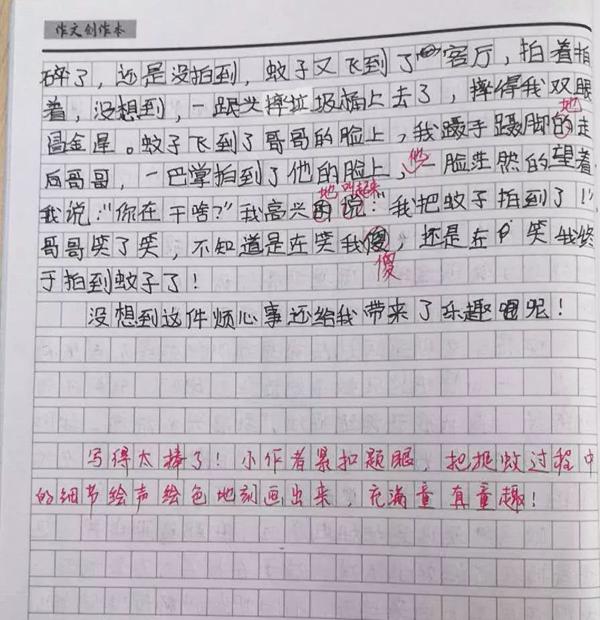 作文创作本
碎了，还是没拍到，蚊子又飞到了客厅，拍着拍
着，没想到，一跟头摔垃圾桶上去了，摔得我双眼
冒金星。蚊子飞到了哥哥的脸上，我蹑手蹑脚地走
向哥哥，一巴掌拍到了他的脸上，他一脸茫然的望着
我说："你在干啥？"我高兴地叫起来："我把蚊子拍到了！"
哥哥笑了笑，不知道是在笑我傻，还是在笑我终
傻
于拍到蚊子了！
没想到这件烦心事还给我带来了乐趣呢！
写得太棒了！小作者紧扣题眼，把抓蚊过程中
的细节绘声绘色地刻画出来，充满童真童趣！